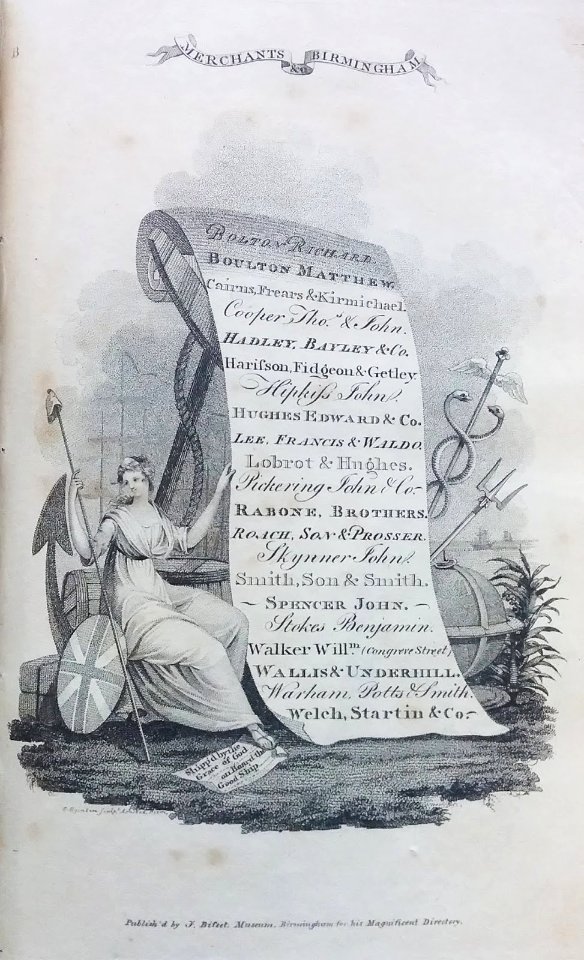 MERCHANTS & BIRMINGHAM
BOLTON RICHARD.
BOULTON MATTHEW.
Cairns, Frears & Kirmichael.
Cooper Tho.s & John.
HADLEY, BAYLEY & Co.
Harisson, Fidgeon & Getley
Hipkiss John.
HUGHES EDWARD & Co.
LEE, FRANCIS & WALDO.
Lobrot & Hughes.
Pickering John & Co.
RABONE, BROTHERS.
ROACH, SON & PROSSER
Skynner John.
Smith, Son & Smith.
~ SPENCER JOHN. ~
Stokes Benjamin.
Walker Will.m (Congreve Street)
WALLIS & UNDERHILL.
Warham, Potts & Smith.
Welch, Startin & Co.
Shipp'd by the
Grace of God
on board the
Good Ship
Publish'd by J. Bisset, Museum, Birmingham for his Magnificent Directory.